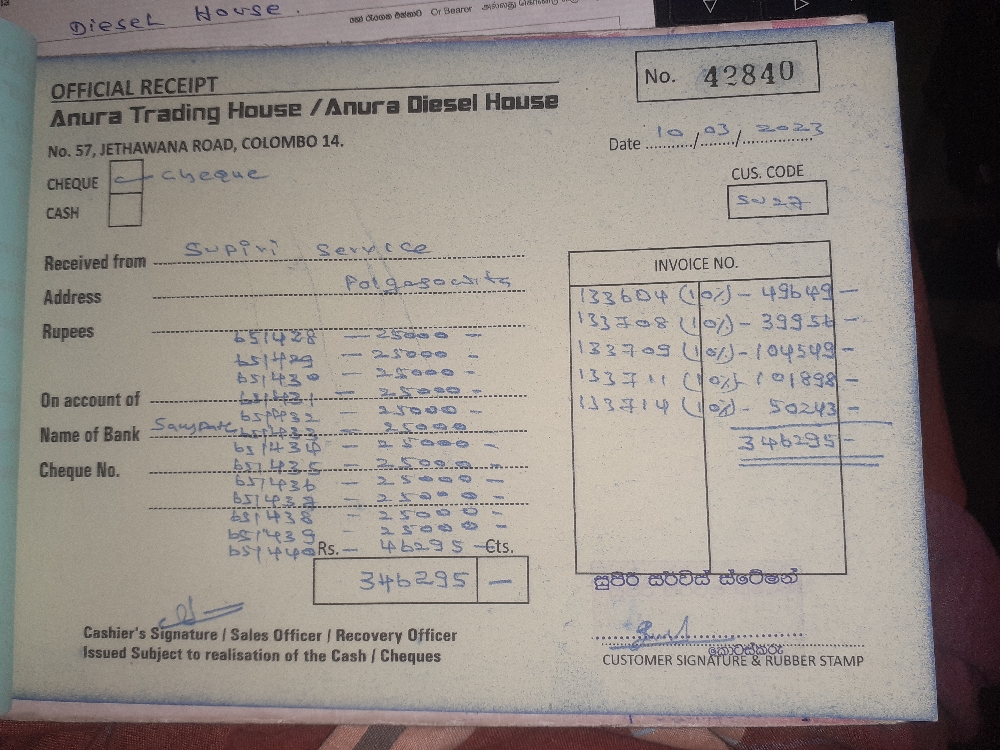 Diesel House.
හෝ රැගෙන එන්නාට Or Bearer அல்லது
OFFICIAL RECEIPT
No. 42840
Anura Trading House / Anura Diesel House
No. 57, JETHAWANA ROAD, COLOMBO 14.
Date 10/03/2023
CHEQUE Cheque
CASH
CUS. CODE
SU27
Received from Supiri Service
Address
Rupees
On account of
Name of Bank
Cheque No.
651428 — 25000 —
651429 — 25000 —
651430 — 25000 —
651431 — 25000 —
651432 — 25000 —
651433 — 25000 —
651434 — 25000 —
651435 — 25000 —
651436 — 25000 —
651437 — 25000 —
651438 — 25000 —
651439 — 25000 —
651440 — 46295 —
Rs. Cts.
346295 —
INVOICE NO.
133604 (10%) - 49649 —
133708 (10%) - 39956 —
133709 (10%) - 104549 —
133711 (10%) - 101898 —
133714 (10%) - 50243 —
346295 —
සුපිරි සර්විස් ස්ටේෂන්
Cashier's Signature / Sales Officer / Recovery Officer
Issued Subject to realisation of the Cash / Cheques
CUSTOMER SIGNATURE & RUBBER STAMP